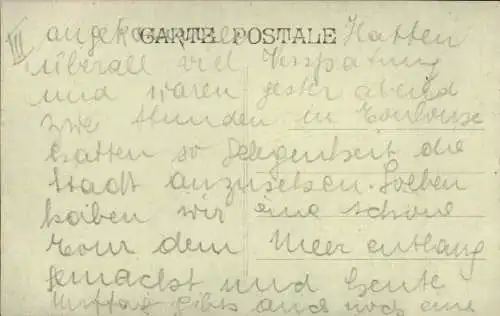 III angekommen CARTE POSTALE Hatten
überall viel Verspätung
und waren gester abend
zwe Stunden in Toulouse
hatten so Gelegenheit die
Stadt anzusehen. Soeben
haben wir eine schöne
Tour dem Meer entlang
gemacht und heute
Mittag gibts auch noch eine